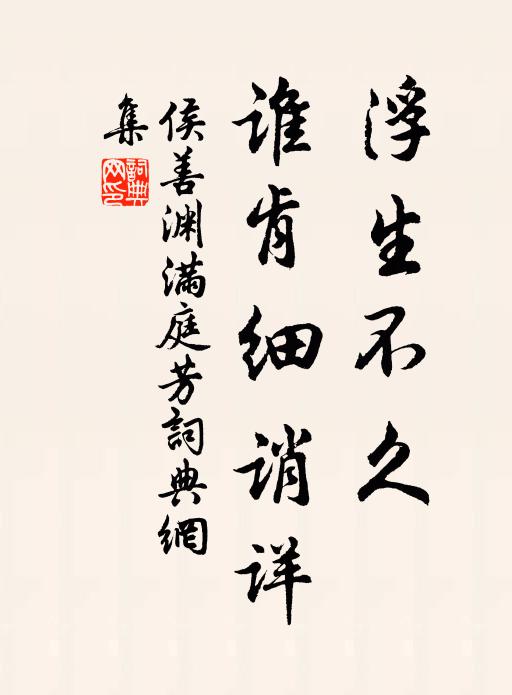 浮生不久
谁肯细诮详
侯善渊满庭芳詞典網
集
詞典
网印